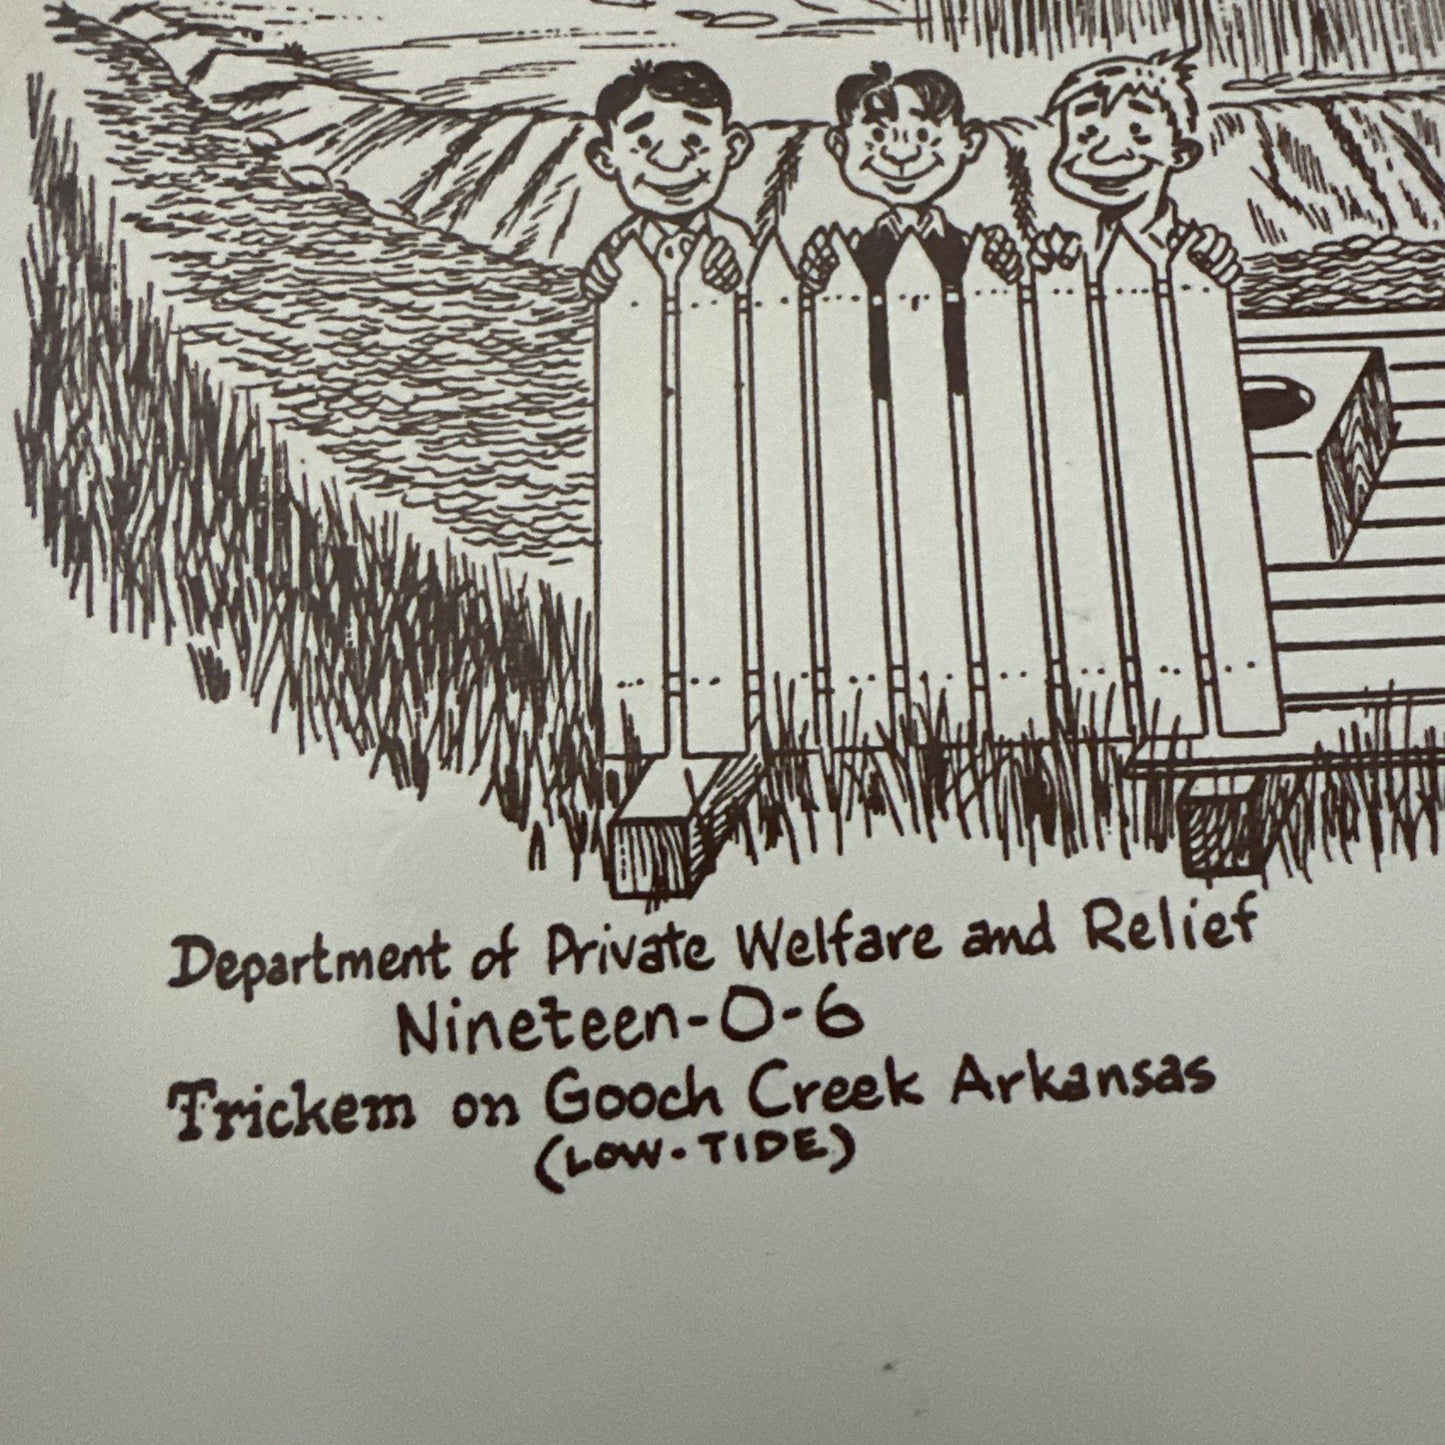 Department of Private Welfare and Relief
Nineteen-O-6
Trickem on Gooch Creek Arkansas
(LOW-TIDE)